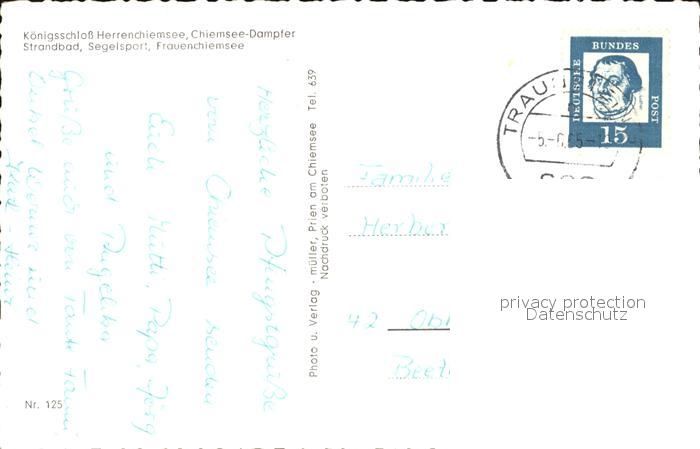 Königsschloß Herrenchiemsee, Chiemsee-Dampfer
Strandbad, Segelsport, Frauenchiemsee
Herzliche Pfingstgrüße
vom Chiemsee senden
Euch Mutti, Papa, Jörg
und
Grüße auch von Tante
und
Nr. 125
Photo u. Verlag - müller, Prien am Chiemsee Tel. 639
Nachdruck verboten
DEUTSCHE BUNDES POST
15
TRAUN
-5.-6.65-
Familie
Herber
42 Ob
Beet
privacy protection
Datenschutz